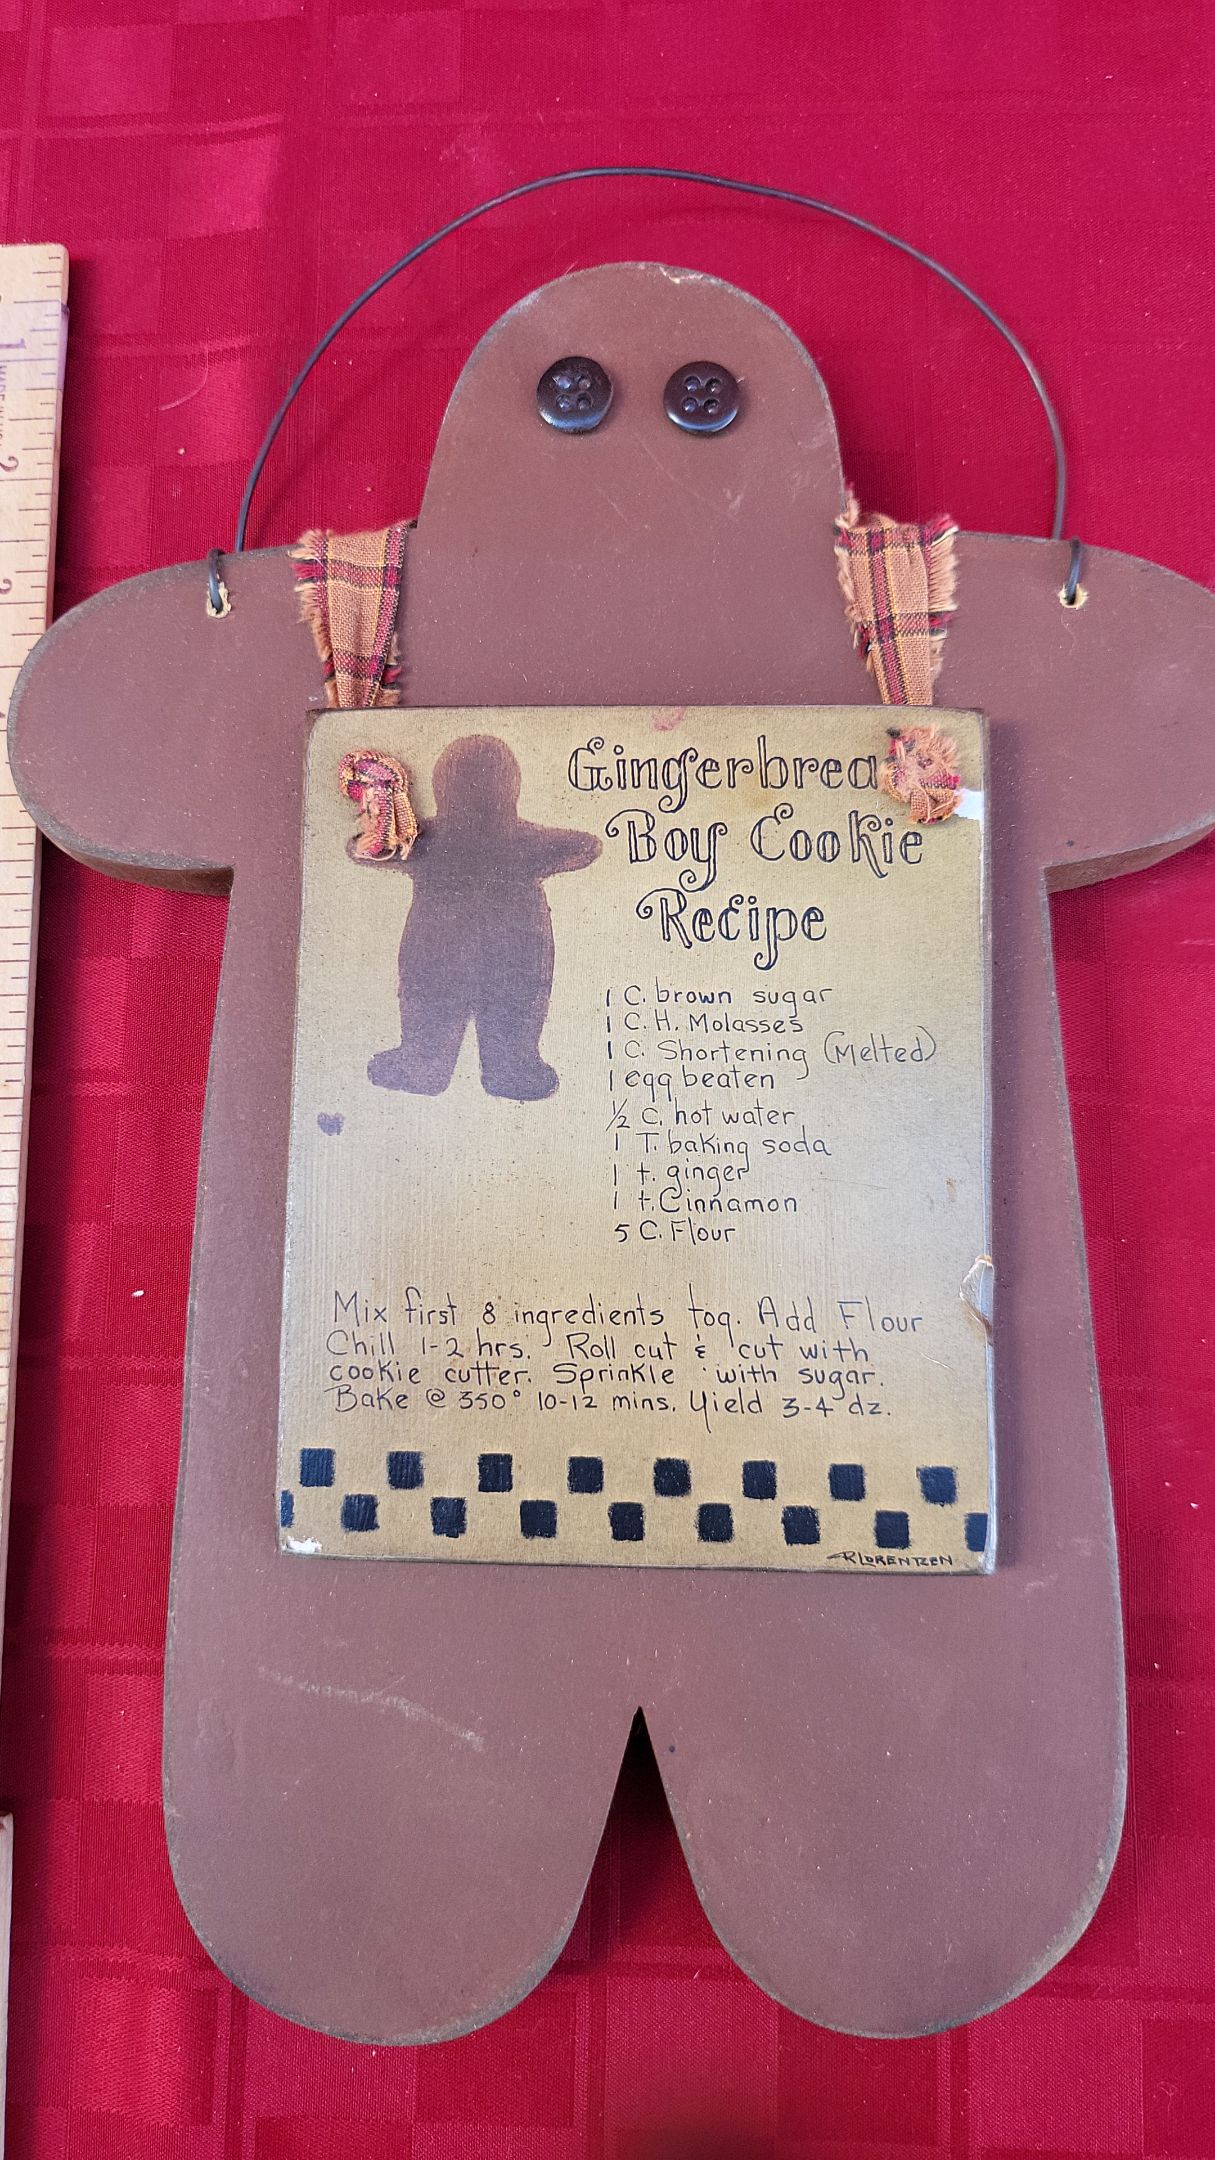 Gingerbrea
Boy Cookie
Recipe
1 C. brown sugar
1 C. H. Molasses
1 C. Shortening (Melted)
1 egg beaten
1/2 C. hot water
1 T. baking soda
1 t. ginger
1 t. Cinnamon
5 C. Flour
Mix first 8 ingredients tog. Add Flour
Chill 1-2 hrs. Roll out & cut with
cookie cutter. Sprinkle with sugar.
Bake @ 350° 10-12 mins. Yield 3-4 dz.
R LORENTZEN
1
2
3